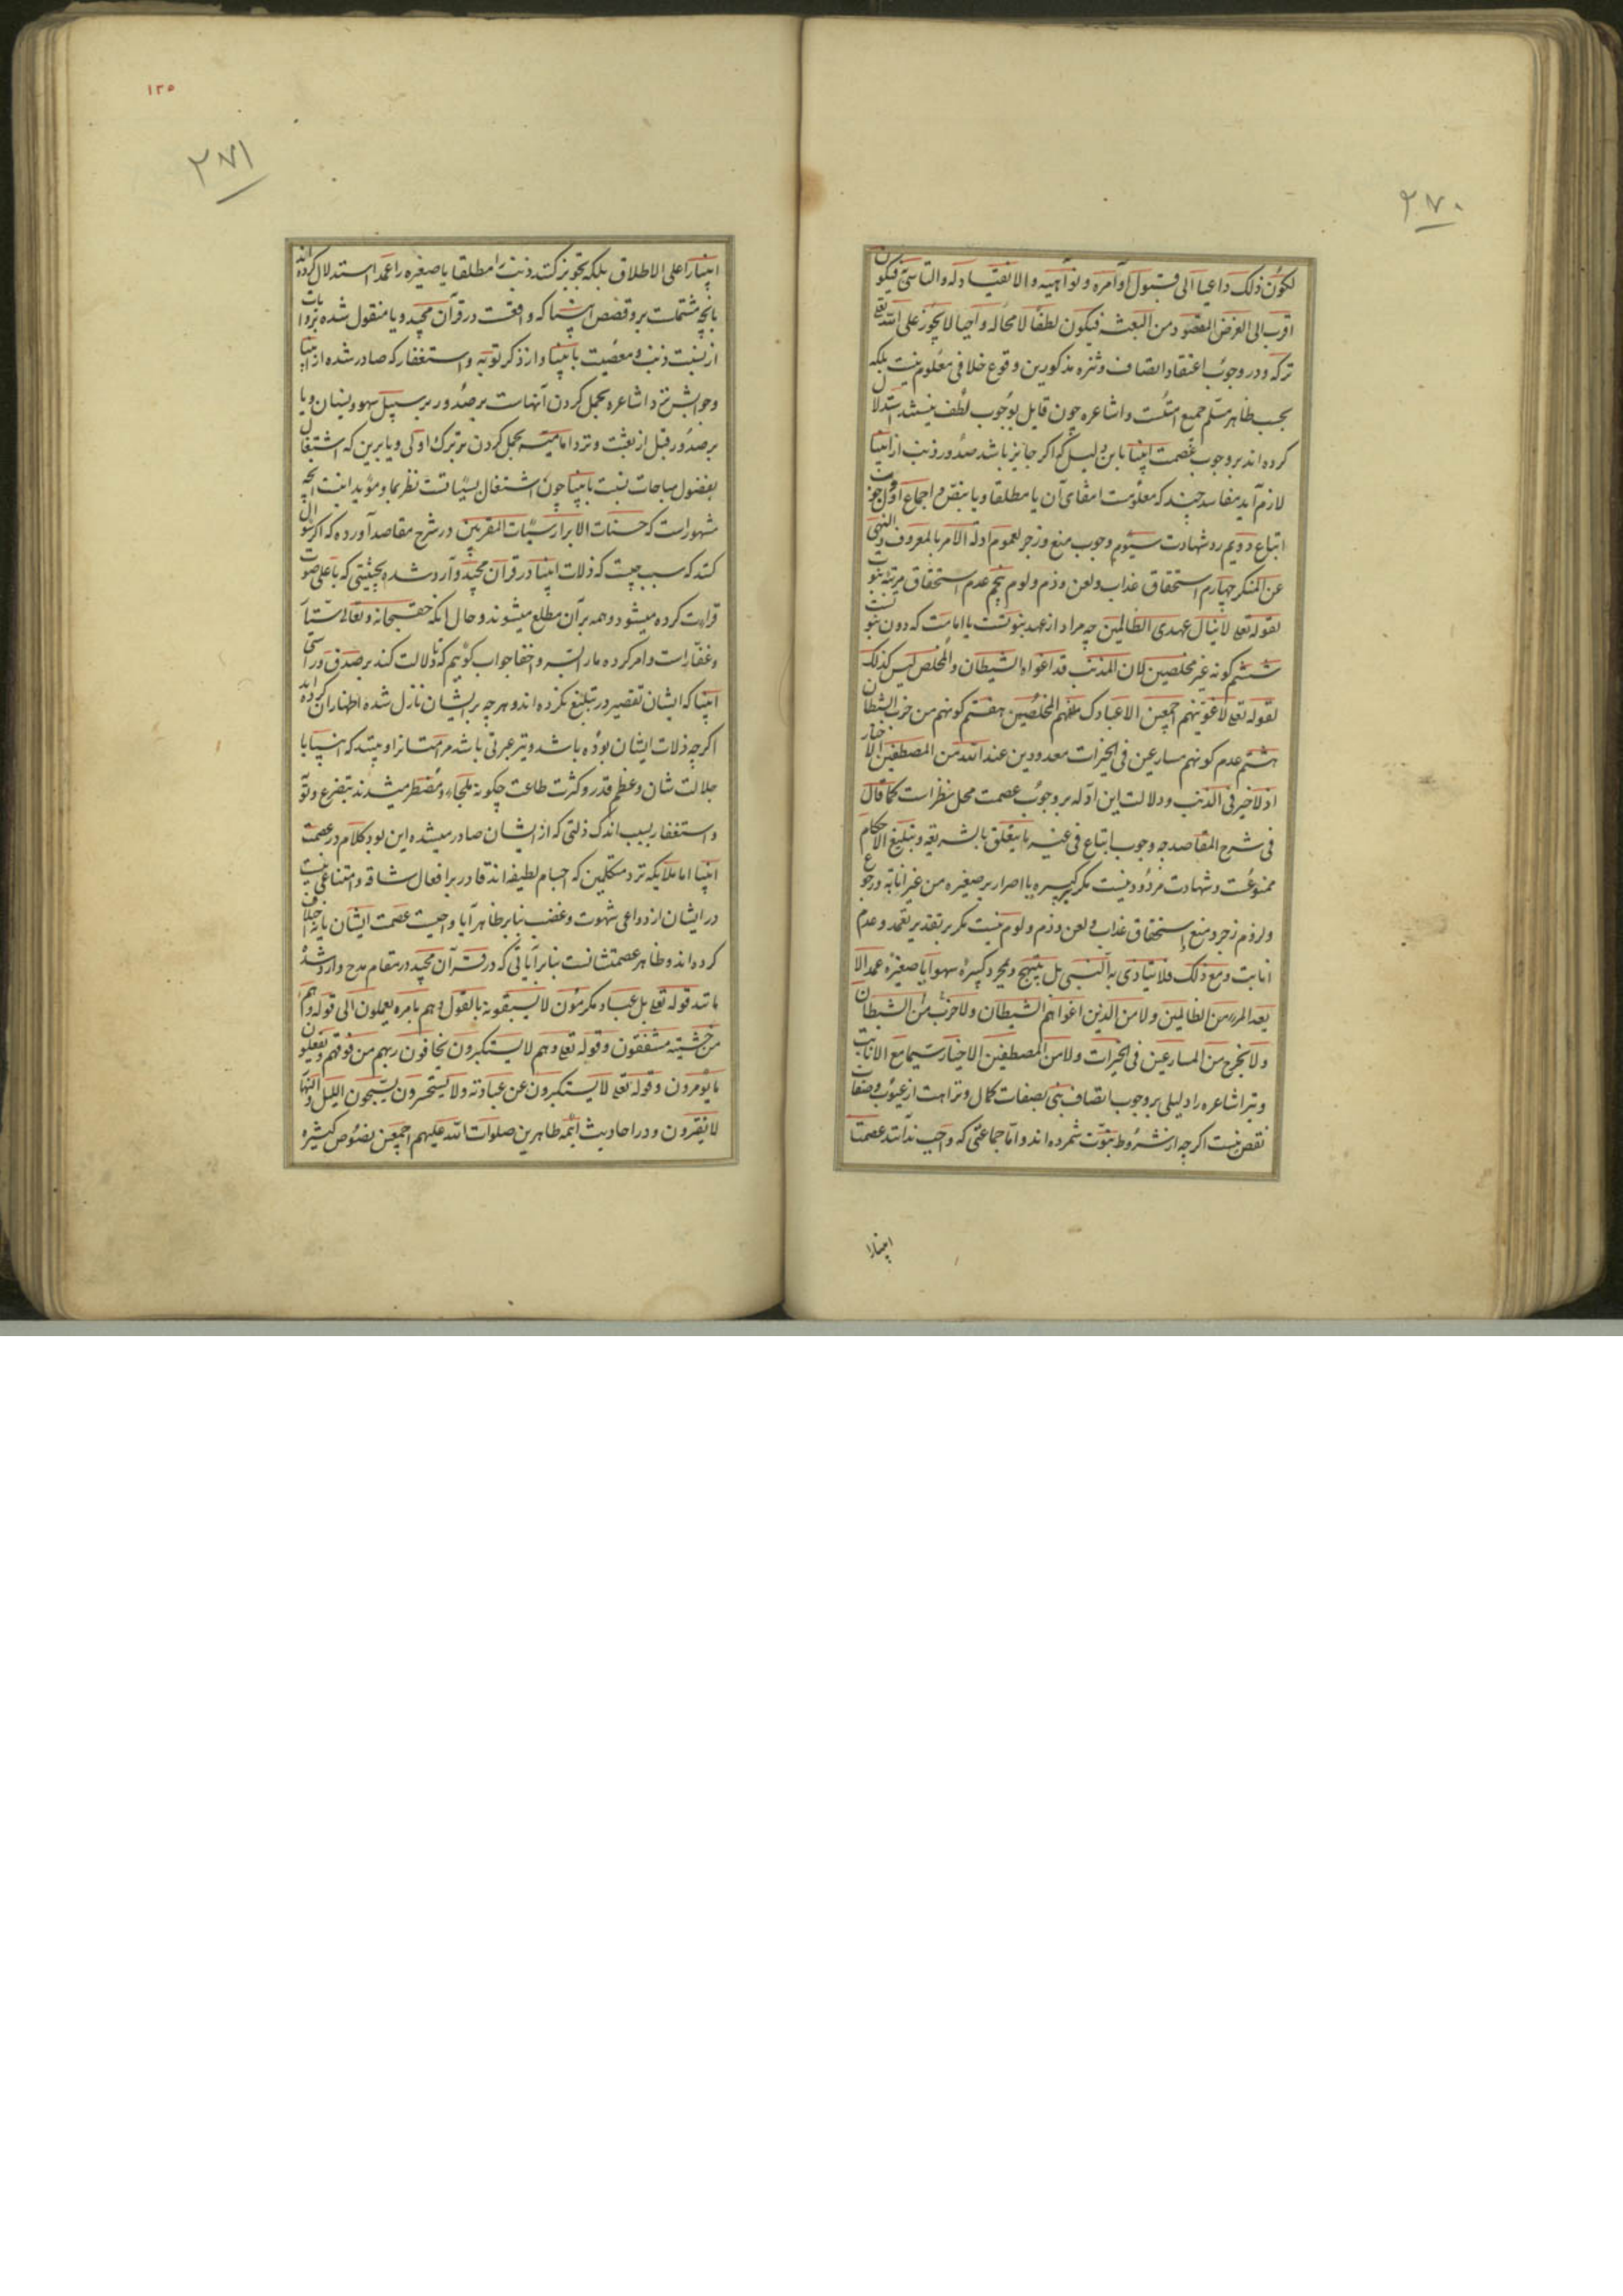 ٢٧٠
لکون ذلک داعیا الی قبول اوامره و نواهیه والانقیاد له والتاسی فیکون
اقرب الی الغرض المقصود من البعث فیکون لطفا لا محاله واجبا لا یجوز علی الله تعالی
ترکه و در وجوب اعتقاد اتصاف و تنزه مذکورین وقوع خلافی معلوم نیست بلکه
بحسب ظاهر مسلم جمیع امتست و اشاعره چون قایل بوجوب لطف نیستند استدلال
کرده اند بر وجوب عصمت انبیا باین دلیل که اگر جایز باشد صدور ذنب از انبیا
لازم آید مفاسد چند که معلومست انتفای آن یا مطلقا و یا بنص و اجماع اول وجوب
اتباع دویم رد شهادت سیوم وجوب منع و زجر لعموم ادلة الامر بالمعروف والنهی
عن المنکر چهارم استحقاق عذاب و لعن و ذم و لوم پنجم عدم استحقاق مرتبه نبوت
لقوله تعالی لا ینال عهدی الظالمین چه مراد از عهد نبوتست یا امامت که دون نبوتست
ششم کونه غیر مخلصین لان المذنب قد اغواه الشیطان والمخلص لیس کذلک
لقوله تعالی لاغوینهم اجمعین الا عبادک منهم المخلصین هفتم کونهم من حزب الشیطان
هشتم عدم کونهم مسارعین فی الخیرات معدودین عند الله من المصطفین الاخیار
اذ لا خیر فی الذنب و دلالت این ادله بر وجوب عصمت محل نظر است کما قال
فی شرح المقاصد چه وجوب اتباع فی غیر ما یتعلق بالشریعه و تبلیغ الاحکام
ممنوعست و شهادت مردود نیست مگر بکبیره یا اصرار بر صغیره من غیر انابة و رجوع
و لزوم زجر و منع و استحقاق عذاب و لعن و ذم و لوم نیست مگر بر تقدیر تعمد و عدم
انابت و مع ذلک فلا یتاذی به النبی بل یبتهج و بمجرد کبیرة سهوا یا صغیرة عمدا لا
یعد المرء من الظالمین ولا من الذین اغواهم الشیطان ولا حزب من الشیطان
ولا یخرج من المسارعین فی الخیرات ولا من المصطفین الاخیار سیما مع الانابت
و نیز اشاعره را دلیلی بر وجوب اتصاف نبی بصفات کمال و نزاهت از عیوب و صفات
نقص نیست اگرچه از شروط نبوت شمرده اند و اما جماعتی که واجب ندانند عصمت
انبیارا
١٣٥
٢٧١
انبیا را علی الاطلاق بلکه تجویز کنند ذنب را مطلقا یا صغیره را عمدا استدلال کرده اند
بآنچه مشتملست بر و قصص انبیا که واقعست در قرآن مجید و یا منقول شده بروایات
از نسبت ذنب و معصیت بانبیا و از ذکر توبه و استغفار که صادر شده از انبیا
و جوابش نزد اشاعره بحمل کردن آنهاست بر صدور بر سبیل سهو و نسیان و یا
بر صدور قبل از بعثت و نزد امامیه بحمل کردن بر ترک اولی و یا برین که اشتغال
بفضول مباحات نسبت بانبیا چون اشتغال بسیئاتست نظر بما و مؤید اینست آنچه
مشهور است که حسنات الابرار سیئات المقربین و در شرح مقاصد آورده که اگر سوال
کنند که سبب چیست که ذلات انبیا در قرآن مجید وارد شده بحیثیتی که باعلی صوت
قرائت کرده میشود و همه بر آن مطلع میشوند و حال انکه حق سبحانه و تعالی ستار
و غفار است و امر کرده ما را بستر و اخفا جواب گوییم که تا دلالت کند بر صدق و راستی
انبیا که ایشان تقصیر در تبلیغ نکرده اند و هرچه بر ایشان نازل شده اظهار آن کرده اند
اگرچه ذلات ایشان بوده باشد و نیز عبرتی باشد مر امتانرا و بینند که انبیا با
جلالت شان و عظم قدر و کثرت طاعت چگونه ملجاء و مضطر میشدند بتضرع و توبه
و استغفار بسبب اندک ذلتی که از ایشان صادر میشده این بود کلام در عصمت
انبیا اما ملائکه نزد متکلمین که اجسام لطیفه اند قادر بر افعال شاقه و امتناعی نیست
در ایشان از دواعی شهوت و غضب بنا بر ظاهر آیا واجبست عصمت ایشان یا نه اختلاف
کرده اند و ظاهر عصمتشانست بنابر آیاتی که در قرآن مجید در مقام مدح وارد شده
مانند قوله تعالی بل عباد مکرمون لا یسبقونه بالقول وهم بامره یعملون الی قوله وهم
من خشیته مشفقون و قوله تعالی وهم لا یستکبرون یخافون ربهم من فوقهم و یفعلون
ما یؤمرون و قوله تعالی لا یستکبرون عن عبادته ولا یستحسرون یسبحون اللیل والنهار
لا یفترون و در احادیث ائمه طاهرین صلوات الله علیهم اجمعین نصوص کثیره